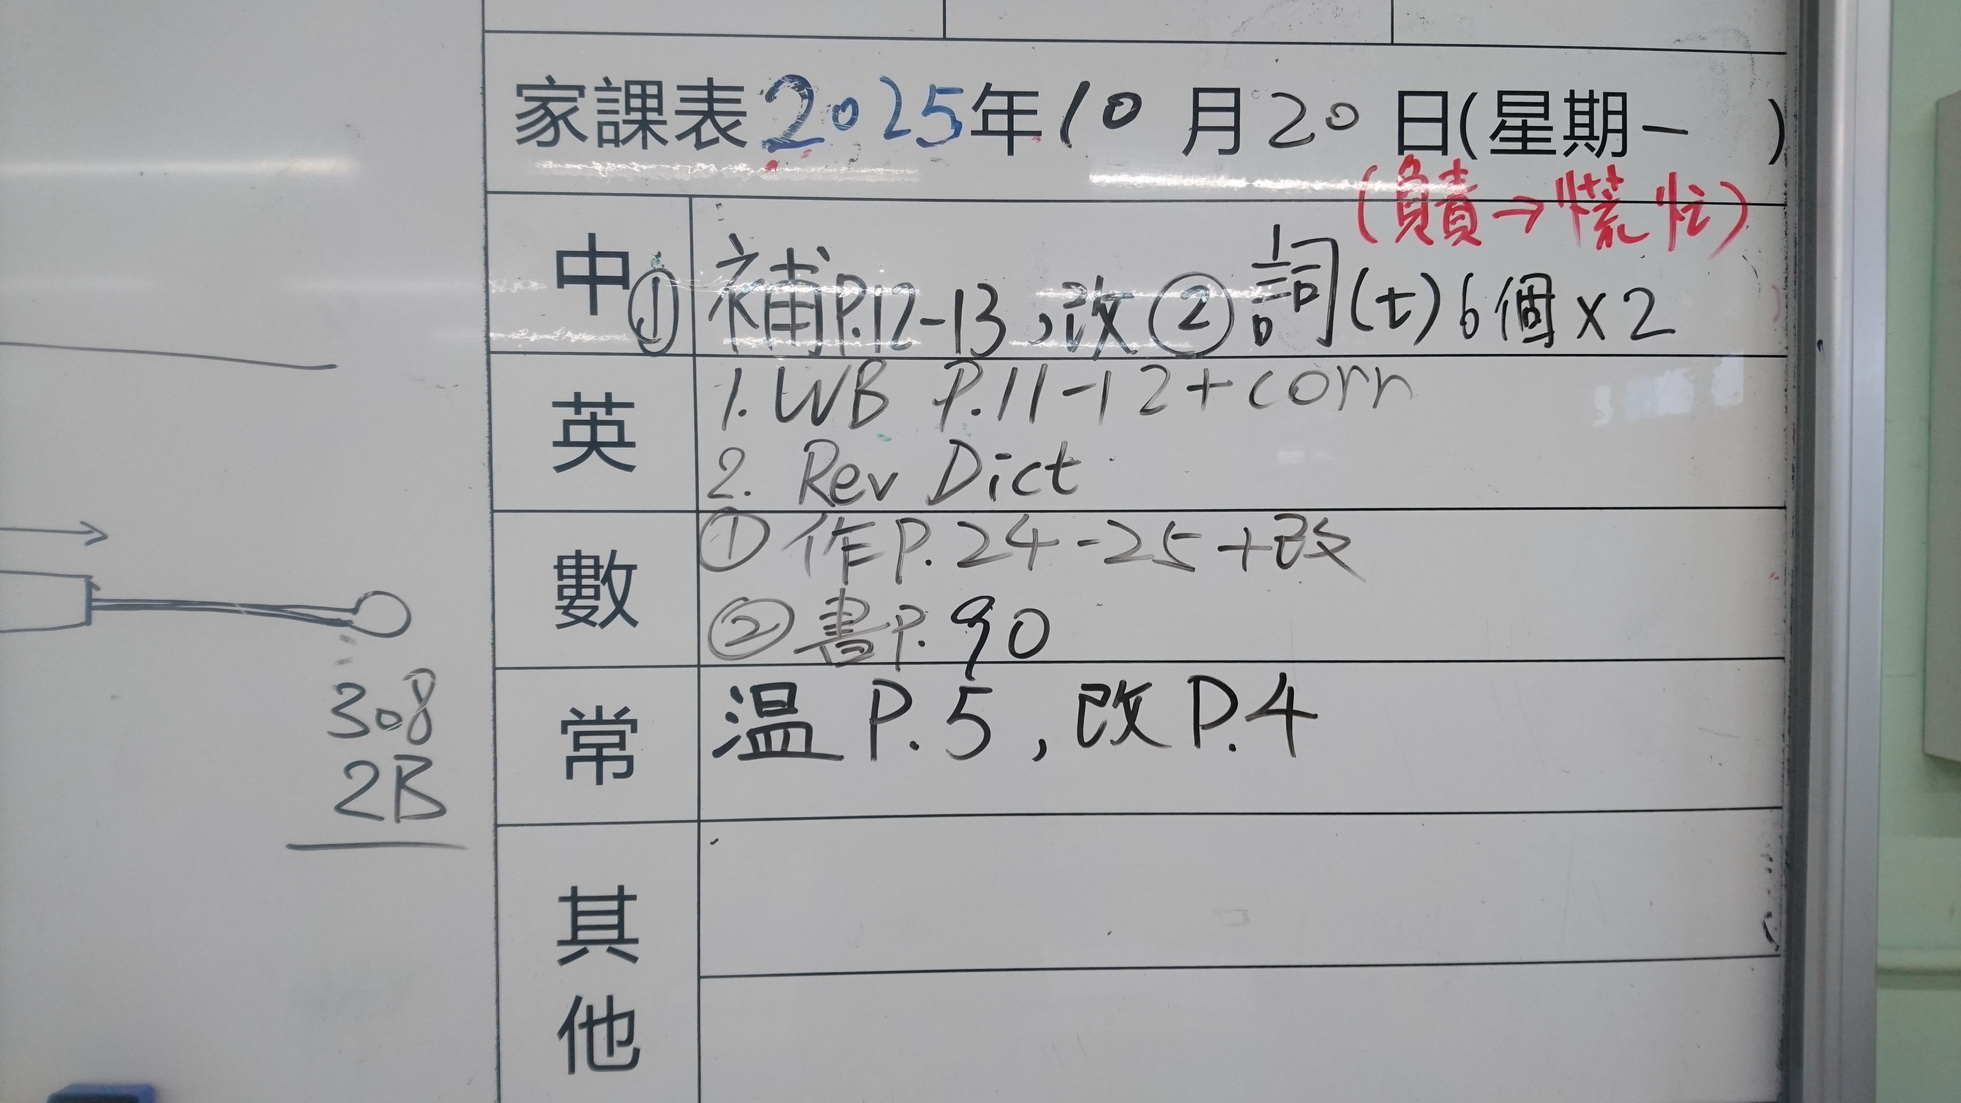 家課表2025年10月20日(星期一)
(負責→慌忙)
中 ① 補P.12-13,改 ② 詞(七)6個x2
英 1. WB P.11-12+corr
2. Rev Dict
數 ① 作P.24-25+改
② 書P.90
常 溫 P.5,改P.4
其他
308
2B